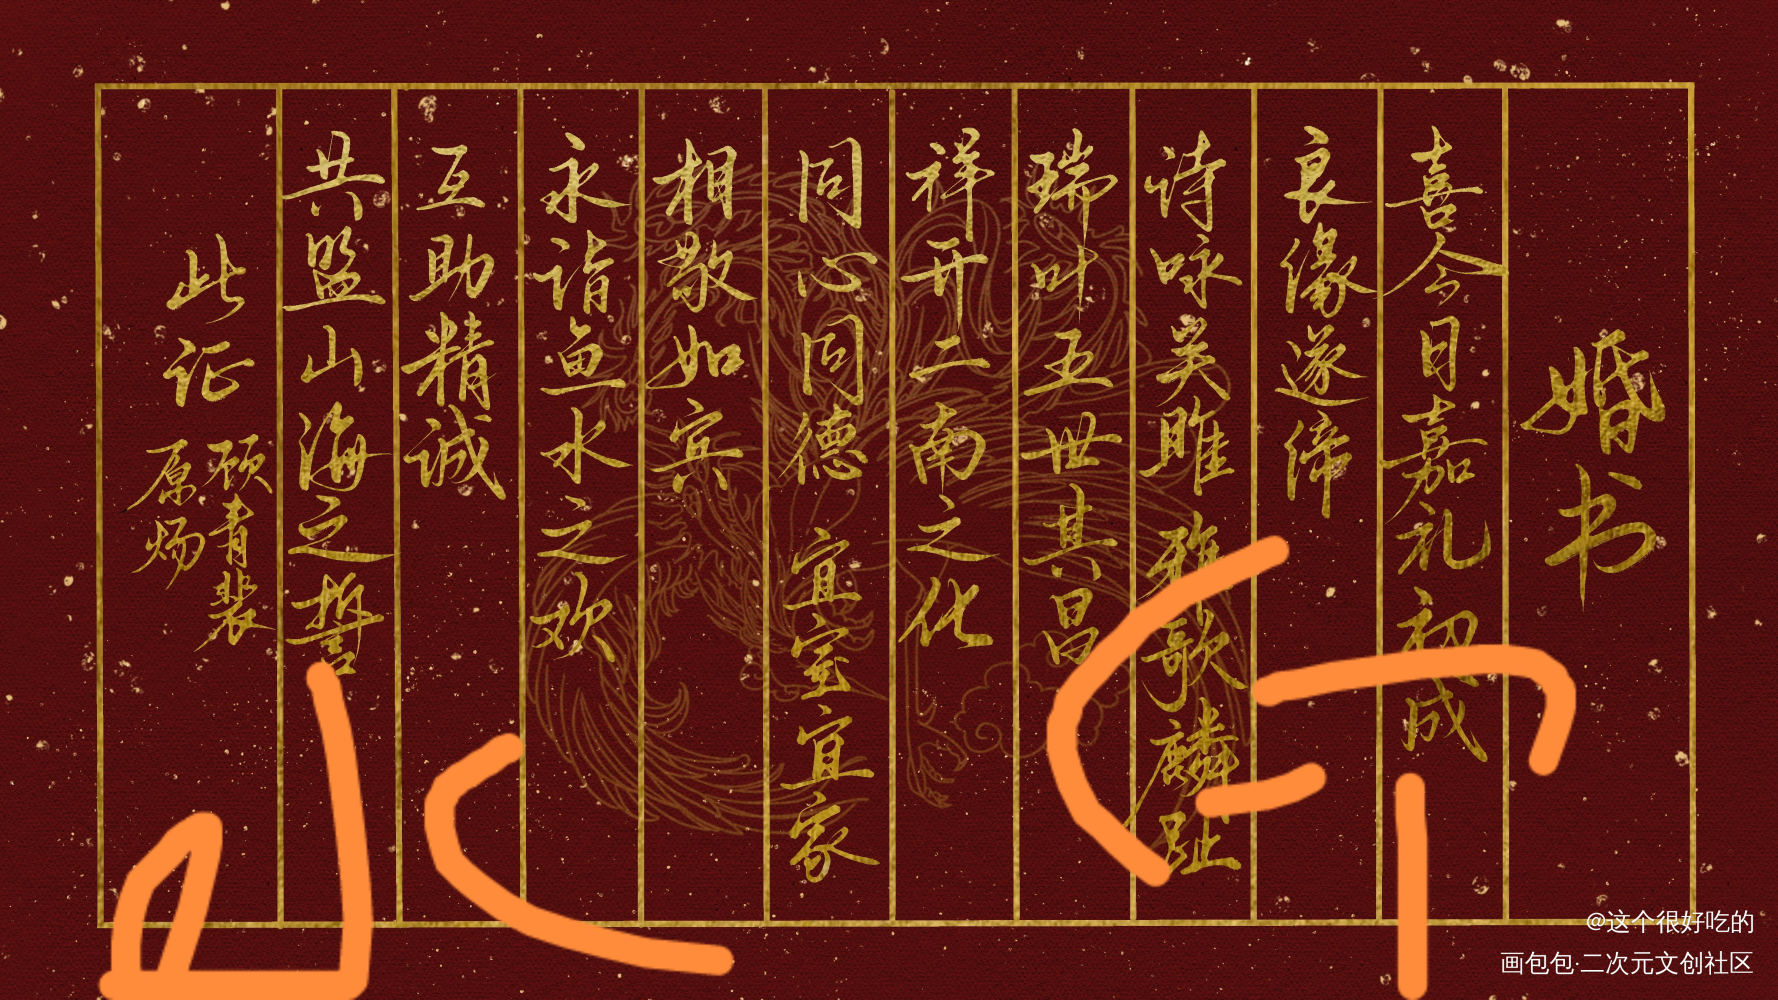 婚书
喜今日嘉礼初成
良缘遂缔
诗咏关雎 雅歌麟趾
瑞叶五世其昌
祥开二南之化
同心同德 宜室宜家
相敬如宾
永谐鱼水之欢
互助精诚
共盟山海之誓
此证
顾青裴
原炀
@这个很好吃的
画包包·二次元文创社区